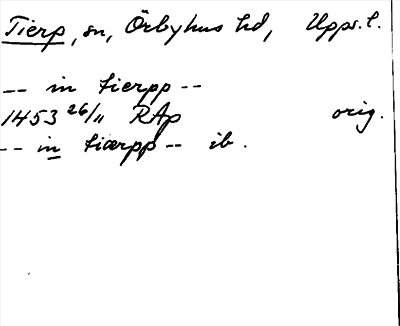 Tierp, sn, Örbyhus hd, Upps. l.
-- in tierpp --
1453 26/11 RAp orig.
-- in tiærpp -- ib.